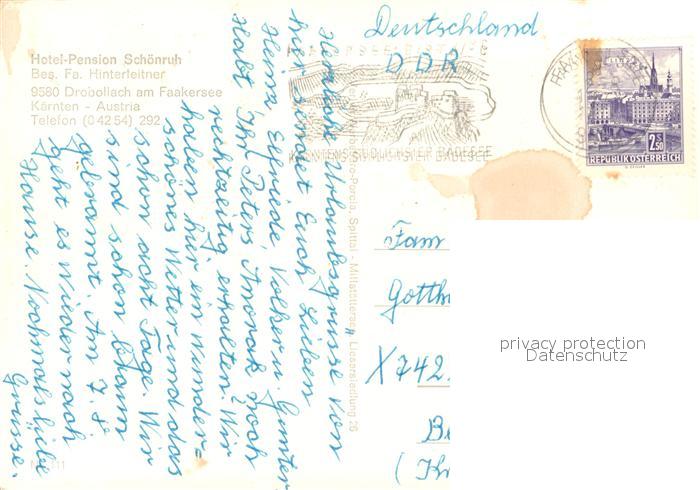 Hotel-Pension Schönruh
Bes. Fa. Hinterleitner
9580 Drobollach am Faakersee
Kärnten - Austria
Telefon (0 42 54) 292
Deutschland
DDR
KÄRNTENS SÜDLICHSTER BADESEE
LINZ
2.50
REPUBLIK ÖSTERREICH
Herzliche Urlaubsgrüsse von
hier sendet Euch Lieben
Heinz Elfriede, Volker u. Gunter
Habt Ihr Peters Anorak noch
rechtzeitig erhalten. Wir
haben hier ein wunder=
schönes Wetter und das
schon acht Tage. Wir
sind schon braun
gebrannt. Am 7.8
geht es wieder nach
Hause. Nochmals liebe
Grüsse.
Porcia, Spittal - Millstättersee, Liesersiedlung 26
Fam
Gotth
X742
B
(Kr
privacy protection
Datenschutz